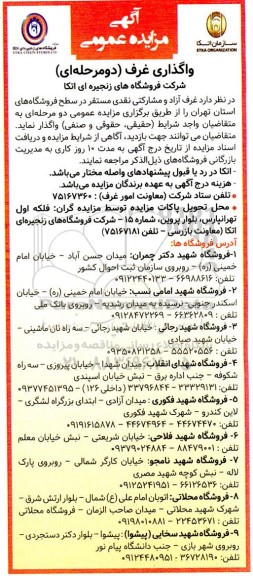 آگهی
مزایده عمومی
سازمان اتکا
ETKA ORGANIZATION
فروشگاه‌های زنجیره‌ای اتکا
ETKA CHAIN STORES CO.
واگذاری غرف (دومرحله‌ای)
شرکت فروشگاه های زنجیره ای اتکا
در نظر دارد غرف آزاد و مشارکتی نقدی مستقر در سطح فروشگاه‌های
استان تهران را از طریق برگزاری مزایده عمومی دو مرحله‌ای به
متقاضیان واجد شرایط (حقیقی، حقوقی و صنفی) واگذار نماید.
متقاضیان می توانند جهت بازدید، آگاهی از شرایط مزایده و دریافت
اسناد مزایده از تاریخ درج آگهی به مدت ۱۰ روز کاری به مدیریت
بازرگانی فروشگاه‌های ذیل‌الذکر مراجعه نمایند.
- اتکا در رد یا قبول پیشنهادهای واصله مختار می‌باشد.
- هزینه درج آگهی به عهده برندگان مزایده می‌باشد.
• تلفن ستاد شرکت (معاونت امور غرف): ۷۵۱۶۷۳۶۰
• محل تحویل پاکات مزایده توسط مزایده گران: فلکه اول
تهرانپارس، بلوار پروین، شماره ۱۵ - شرکت فروشگاه‌های زنجیره‌ای
اتکا (معاونت بازرسی - تلفن: ۷۵۱۶۷۱۸۱)
آدرس فروشگاه ها:
۱-فروشگاه شهید دکتر چمران: میدان حسن آباد - خیابان امام
خمینی (ره) - روبروی سازمان ثبت احوال کشور
تلفن: ۶۶۹۸۸۶۱۶ - ۰۹۱۲۲۴۴۰۱۳۲
۲-فروشگاه شهید امامی نسب: خیابان امام خمینی (ره) - خیابان
اسکندر جنوبی - نرسیده به میدان رشدیه - روبروی بانک ملی
تلفن: ۶۶۳۶۲۸۰۹ - ۰۹۱۲۸۴۷۲۲۶۹
۳-فروشگاه شهید رجائی: خیابان شهید رجائی - سه راه نان ماشینی -
خیابان شهید صیادی
تلفن: ۵۵۵۲۰۵۵۶ - ۰۹۳۵۰۸۲۱۲۵۸
۴-فروشگاه شهدای انقلاب: میدان شهدا - خیابان پیروزی - سه راه
شکوفه - جنب اداره برق - نبش خیابان اسپندی
تلفن: ۳۳۳۲۹۱۳۱ - ۳۳۷۹۶۸۴۴ (داخلی ۱۲۶) - ۰۹۳۷۷۴۵۱۳۹۵
۵-فروشگاه شهید فکوری: میدان آزادی - ابتدای بزرگراه لشگری -
لاین کندرو - شهرک شهید فکوری
تلفن: ۴۴۶۷۴۴۷۰ - ۴۴۶۷۴۹۶۴ - ۰۹۱۹۱۶۱۵۸۷۸
۶-فروشگاه شهید فلاحی: خیابان شریعتی - نبش خیابان معلم
تلفن: ۸۸۴۷۹۰۰۱ - ۰۹۳۷۹۰۲۴۸۸۴
۷-فروشگاه شهید نامجو: خیابان کارگر شمالی - روبروی پارک
لاله - نبش کوچه شهید مصری
تلفن: ۶۶۱۲۶۵۳۶ - ۰۹۱۲۵۲۴۱۹۵۱
۸-فروشگاه محلاتی: اتوبان امام علی (ع) شمال - بلوار ارتش شرق -
شهرک شهید محلاتی - میدان صاحب الزمان - فروشگاه محلاتی
تلفن: ۲۲۴۵۳۶۷۱ - ۰۹۱۹۸۰۱۰۸۸۱
۹-فروشگاه شهید سخایی (پیشوا): پیشوا - بلوار دکتر دستجردی -
روبروی شهر بازی - جنب دانشگاه پیام نور
تلفن: ۳۶۷۲۸۱۹۰ - ۰۹۱۲۴۴۸۰۹۵۱